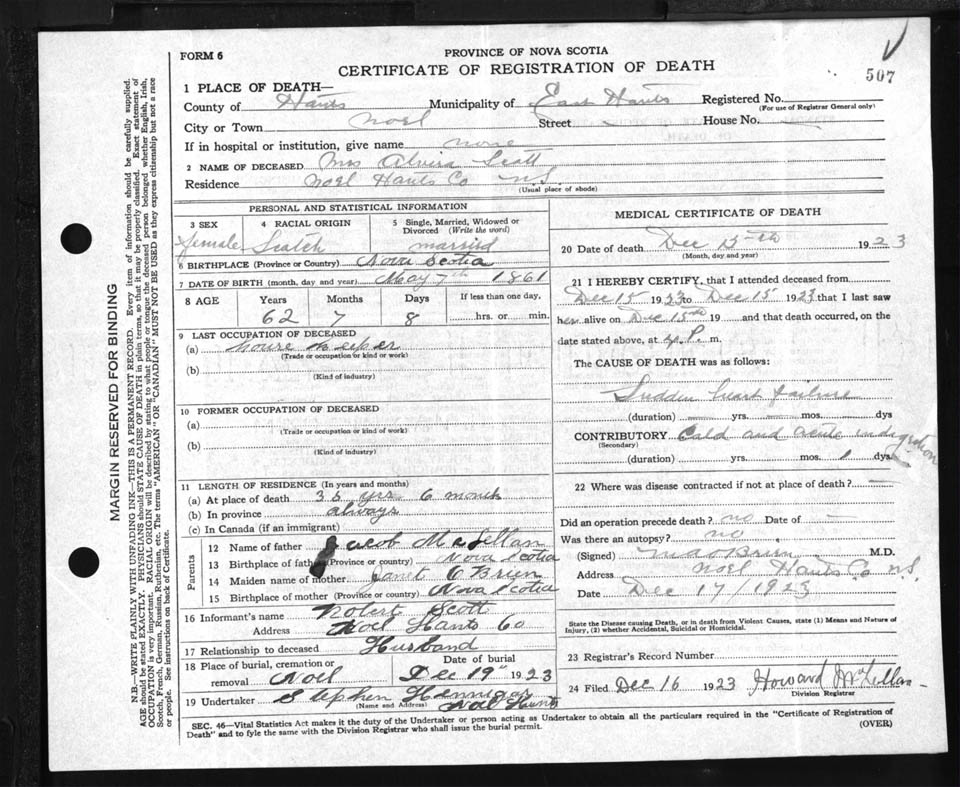 507
FORM 6
PROVINCE OF NOVA SCOTIA
CERTIFICATE OF REGISTRATION OF DEATH
1 PLACE OF DEATH—
County of Hants Municipality of East Hants Registered No.
(For use of Registrar General only)
City or Town Noel Street House No.
If in hospital or institution, give name none
2 NAME OF DECEASED Mrs Alvira Scott
Residence Noel Hants Co N.S.
(Usual place of abode)
PERSONAL AND STATISTICAL INFORMATION
3 SEX 4 RACIAL ORIGIN 5 Single, Married, Widowed or Divorced (Write the word)
female Scotch married
6 BIRTHPLACE (Province or Country) Nova Scotia
7 DATE OF BIRTH (month, day and year) May 7th 1861
8 AGE Years Months Days If less than one day,
62 7 8 hrs. or min.
9 LAST OCCUPATION OF DECEASED
(a) house keeper
(Trade or occupation or kind or work)
(b)
(Kind of industry)
10 FORMER OCCUPATION OF DECEASED
(a)
(Trade or occupation or kind of work)
(b)
(Kind of industry)
11 LENGTH OF RESIDENCE (In years and months)
(a) At place of death 36 yrs 6 month
(b) In province always
(c) In Canada (if an immigrant)
Parents
12 Name of father Jacob McLellan
13 Birthplace of father (Province or country) Nova Scotia
14 Maiden name of mother Janet O'Brien
15 Birthplace of mother (Province or country) Nova Scotia
16 Informant's name Robert Scott
Address Noel Hants Co
17 Relationship to deceased Husband
18 Place of burial, cremation or removal Noel Date of burial Dec 19" 1923
19 Undertaker Stephen Hennigar
(Name and Address) Noel Hants
MEDICAL CERTIFICATE OF DEATH
20 Date of death Dec 15th 1923
(Month, day and year)
21 I HEREBY CERTIFY, that I attended deceased from
Dec 15 1923 to Dec 15 1923 that I last saw
her alive on Dec 15th 19 and that death occurred, on the
date stated above, at P. m.
The CAUSE OF DEATH was as follows:
Sudden heart failure
(duration) yrs. mos. dys
CONTRIBUTORY Cold and acute indigestion
(Secondary)
(duration) yrs. mos. 1 dys.
22 Where was disease contracted if not at place of death?
Did an operation precede death? no Date of
Was there an autopsy? no
(Signed) O'Brien M.D.
Address Noel Hants Co N.S.
Date Dec 17/1923
State the Disease causing Death, or in death from Violent Causes, state (1) Means and Nature of
Injury, (2) whether Accidental, Suicidal or Homicidal.
23 Registrar's Record Number
24 Filed Dec 16 1923 Howard McLellan
Division Registrar
SEC. 46—Vital Statistics Act makes it the duty of the Undertaker or person acting as Undertaker to obtain all the particulars required in the "Certificate of Registration of
Death" and to fyle the same with the Division Registrar who shall issue the burial permit.
(OVER)
MARGIN RESERVED FOR BINDING
N.B.—WRITE PLAINLY WITH UNFADING INK—THIS IS A PERMANENT RECORD. Every item of information should be carefully supplied.
AGE should be stated EXACTLY. PHYSICIANS should STATE CAUSE OF DEATH in plain terms, so that it may be properly classified. Exact statement of
OCCUPATION is very important. RACIAL ORIGIN will be described by stating to what people or tongue the deceased person belonged whether English, Irish,
Scotch, French, German, Russian, Ruthenian, etc. The terms "AMERICAN" OR "CANADIAN" MUST NOT BE USED as they express citizenship but not a race
or people. See instructions on back of Certificate.